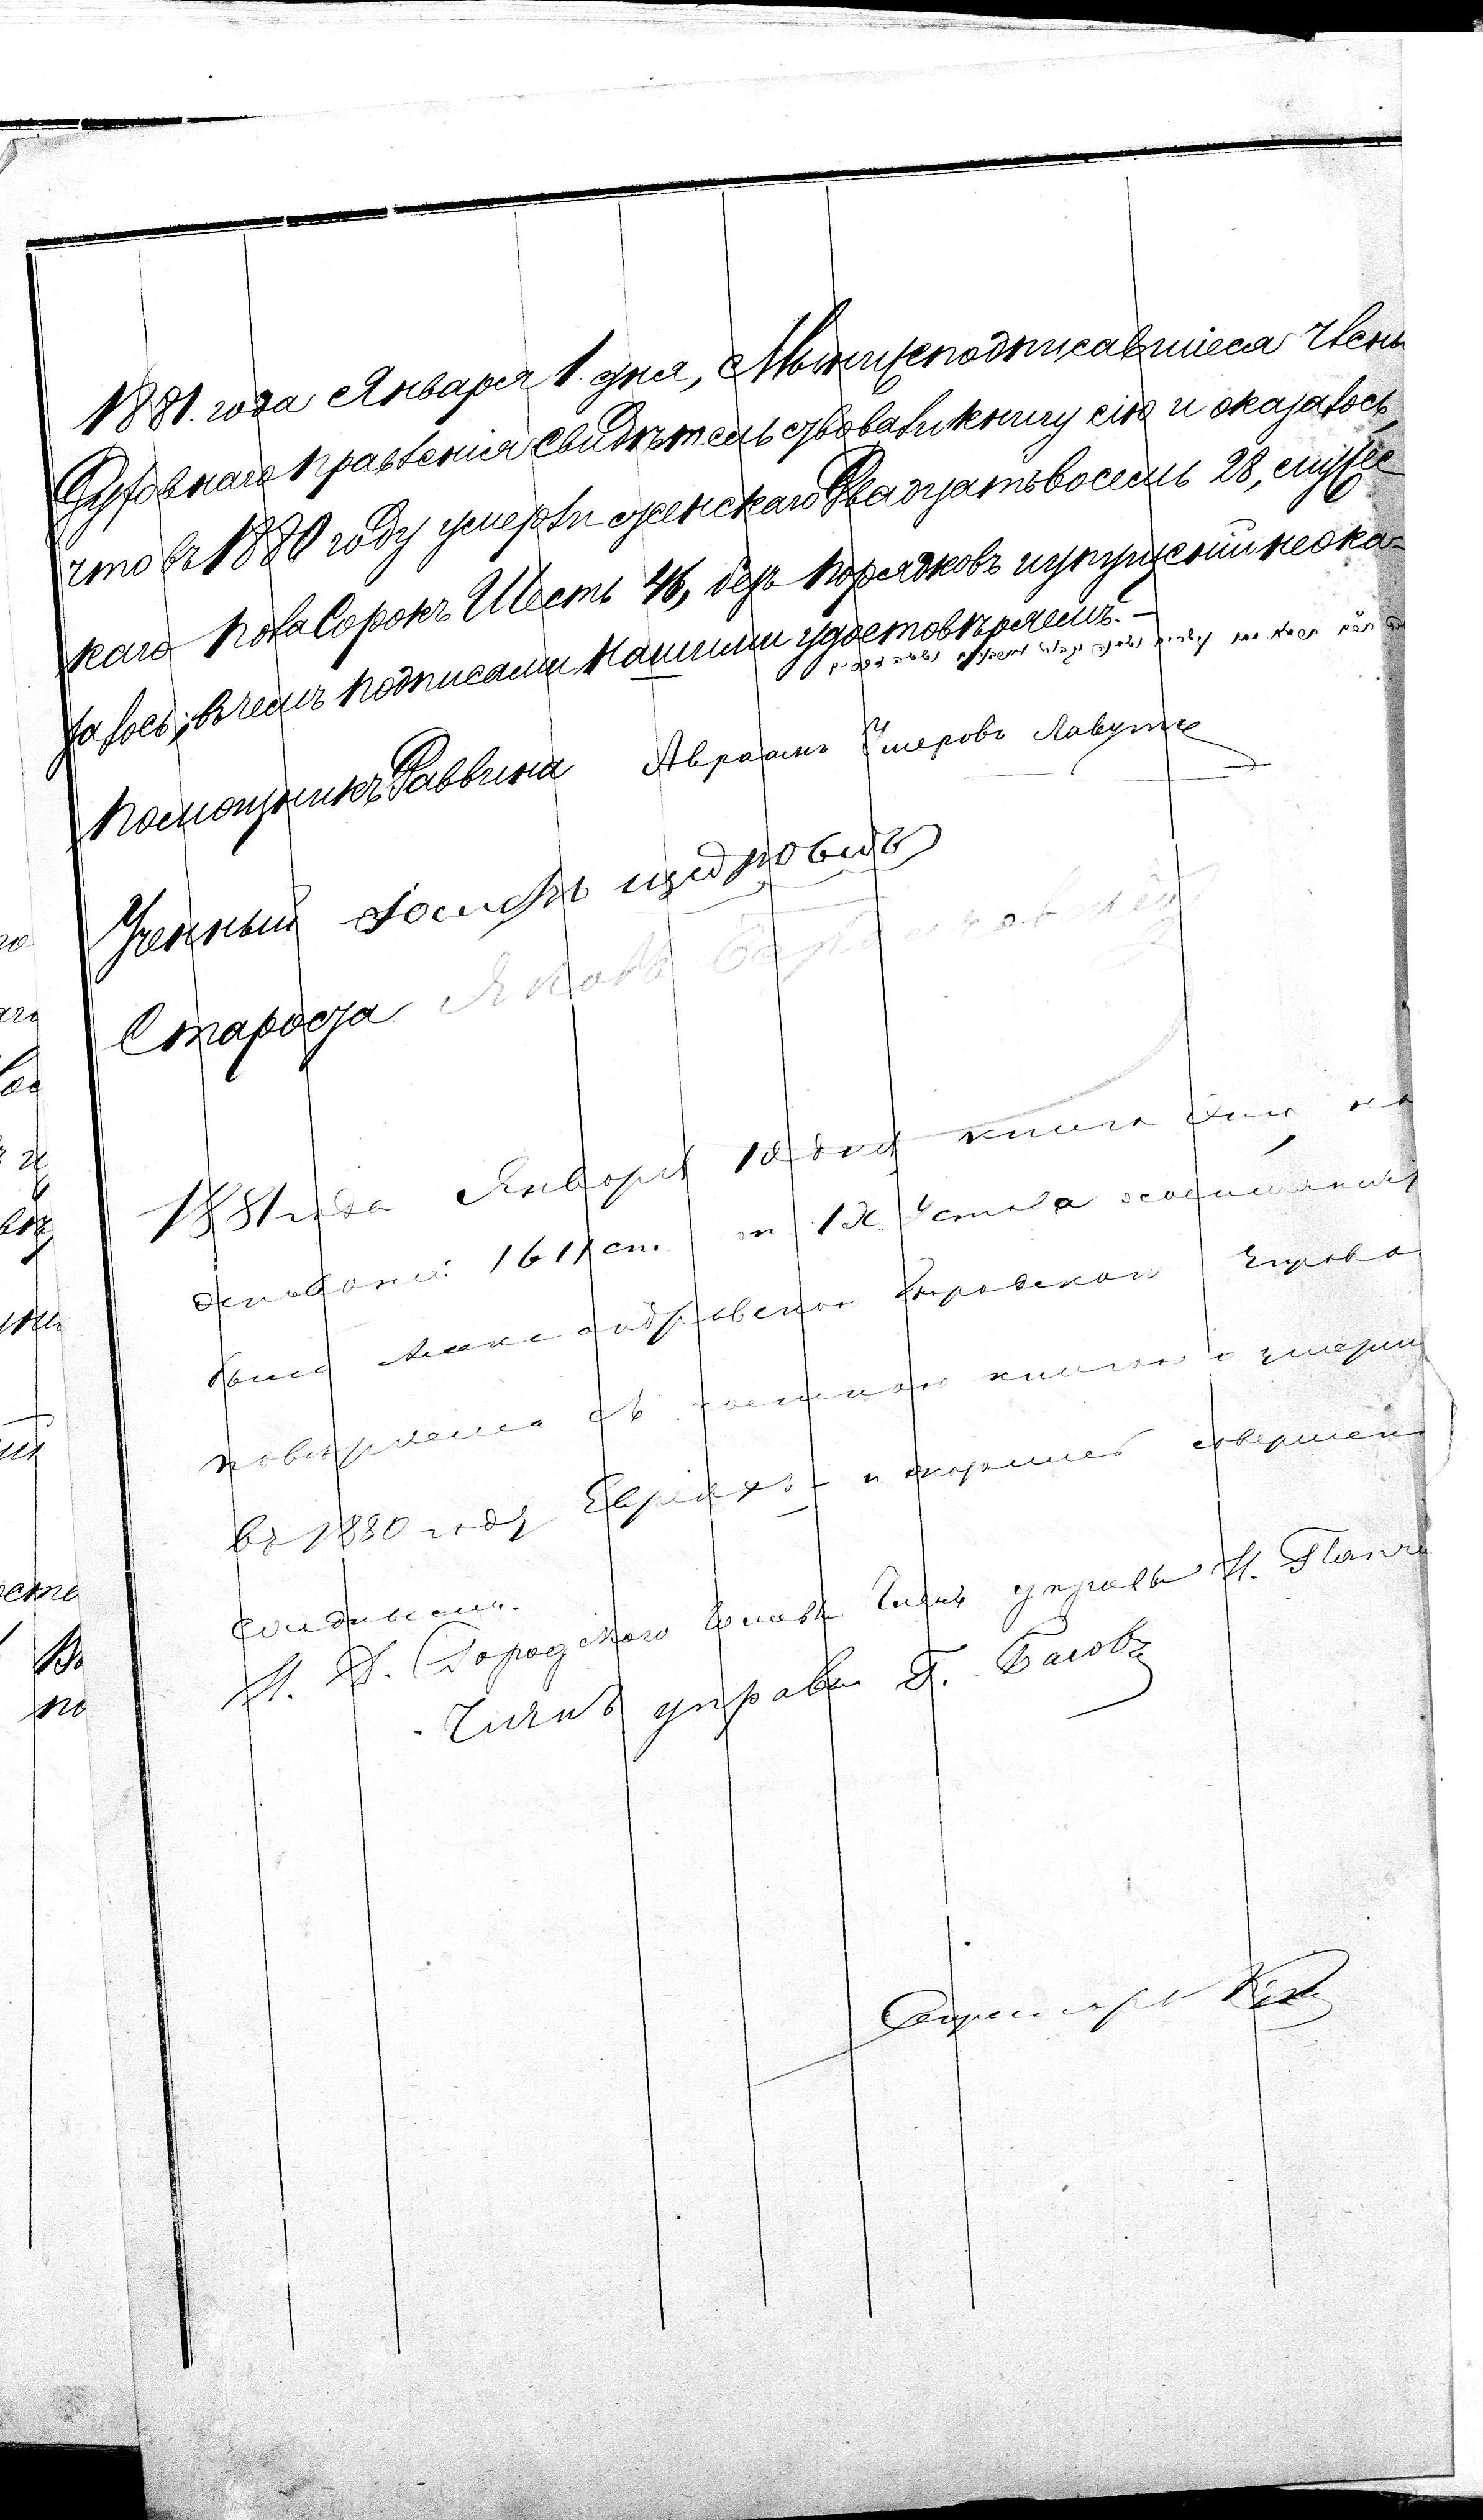 1881. года Января 1. дня, Мы нижеподписавшіеся члены
Духовнаго правленія свидѣтельствовали книгу сію и оказалось,
что въ 1880 году умерли женскаго Двадцать восемь 28, мужес
каго пола Сорокъ Шесть 46, безъ порядковъ и упущеній неока=
залось; въ чемъ подписами Нашими удостовѣряемъ. —
Помощникъ Раввина Авраамъ Лавутъ
Ученный Іосифъ Щедровиц
Староста Яковъ
1881 года Января 10 дня книга сія на
основаніи 1611 ст. т IX Устава о состояніяхъ
была Александровскою Городскою Управою
повѣряема съ книгою о умерши
въ 1880 году Евреяхъ и совершенно
сходною.
И. Д. Городскаго Головы Членъ управы Н.
Членъ управы Г. Баговъ
Секретарь